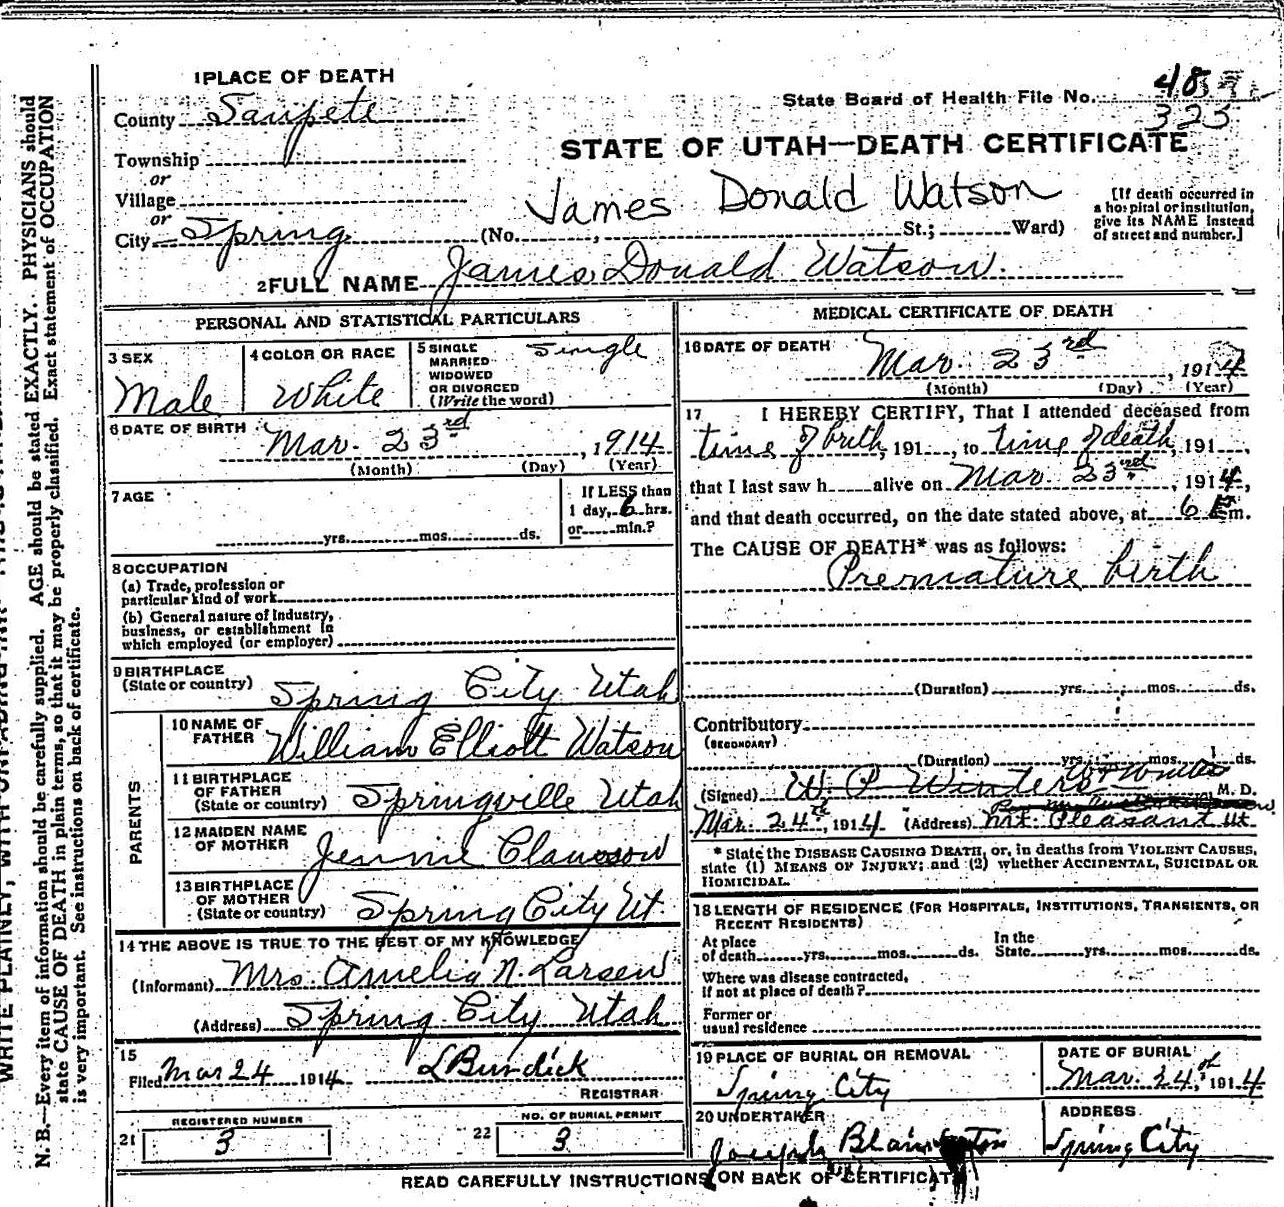 1 PLACE OF DEATH
County Sanpete
Township
or
Village
or
City Spring
State Board of Health File No. 48
325
STATE OF UTAH—DEATH CERTIFICATE
James Donald Watson
(No. , St.; Ward)
[If death occurred in a hospital or institution, give its NAME instead of street and number.]
2 FULL NAME James Donald Watson.
PERSONAL AND STATISTICAL PARTICULARS
3 SEX
Male
4 COLOR OR RACE
White
5 SINGLE
MARRIED
WIDOWED
OR DIVORCED
(Write the word)
Single
6 DATE OF BIRTH
Mar. 23rd, 1914
(Month) (Day) (Year)
7 AGE
yrs. mos. ds.
If LESS than
1 day, 6 hrs.
or min.?
8 OCCUPATION
(a) Trade, profession or
particular kind of work
(b) General nature of industry,
business, or establishment in
which employed (or employer)
9 BIRTHPLACE
(State or country) Spring City Utah
PARENTS
10 NAME OF
FATHER William Elliott Watson
11 BIRTHPLACE
OF FATHER
(State or country) Springville Utah
12 MAIDEN NAME
OF MOTHER Jennie Clawson
13 BIRTHPLACE
OF MOTHER
(State or country) Spring City Ut.
14 THE ABOVE IS TRUE TO THE BEST OF MY KNOWLEDGE
(Informant) Mrs. Amelia N. Larsen
(Address) Spring City Utah
15
Filed Mar 24 1914 L Burdick
REGISTRAR
REGISTERED NUMBER
21 3
NO. OF BURIAL PERMIT
22 3
MEDICAL CERTIFICATE OF DEATH
16 DATE OF DEATH
Mar. 23rd, 1914
(Month) (Day) (Year)
17 I HEREBY CERTIFY, That I attended deceased from
time of birth, 191 , to time of death, 191 ,
that I last saw h alive on Mar. 23rd, 1914,
and that death occurred, on the date stated above, at 6 P m.
The CAUSE OF DEATH* was as follows:
Premature birth
(Duration) yrs. mos. ds.
Contributory
(SECONDARY)
(Duration) yrs. mos. ds.
(Signed) W. P. Winters W P Winters M. D.
Mar. 24th, 1914 (Address) Mt. Pleasant Ut
* State the DISEASE CAUSING DEATH, or, in deaths from VIOLENT CAUSES,
state (1) MEANS OF INJURY; and (2) whether ACCIDENTAL, SUICIDAL OR
HOMICIDAL.
18 LENGTH OF RESIDENCE (FOR HOSPITALS, INSTITUTIONS, TRANSIENTS, OR
RECENT RESIDENTS)
At place
of death yrs. mos. ds.
In the
State yrs. mos. ds.
Where was disease contracted,
if not at place of death?
Former or
usual residence
19 PLACE OF BURIAL OR REMOVAL
Spring City
DATE OF BURIAL
Mar. 24,th 1914
20 UNDERTAKER
Joseph
ADDRESS
Spring City
READ CAREFULLY INSTRUCTIONS ON BACK OF CERTIFICATE
WRITE PLAINLY, WITH UNFADING INK
N. B.—Every item of information should be carefully supplied. AGE should be stated EXACTLY. PHYSICIANS should
state CAUSE OF DEATH in plain terms, so that it may be properly classified. Exact statement of OCCUPATION
is very important. See instructions on back of certificate.